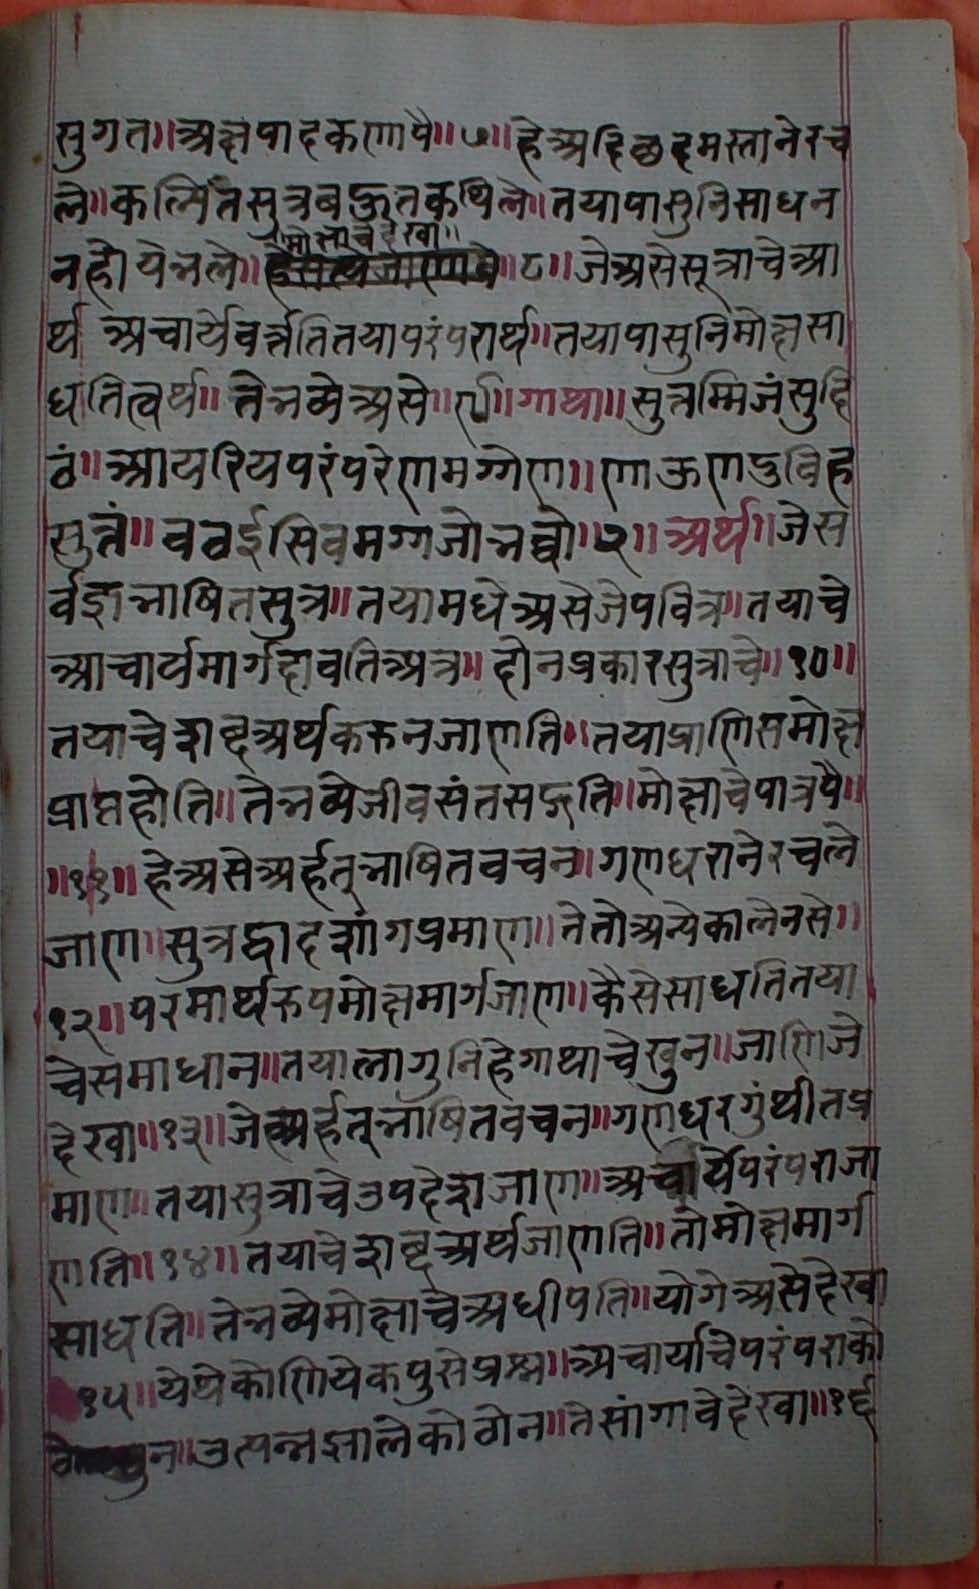 सुगत॥अक्षपादकणापै॥७॥हेअदिछद्मस्तानेरच
ले॥कल्पितसुत्रबहूतकथिले॥तयापासुनिसाधन
मोक्षाचेदेखा॥
नहोयेभले॥ ॥८॥जेअसेसूत्राचेआ
र्थ अचार्येवर्त्ततितयापरंपरार्थ॥तयापासुनिमोक्षसा
धतित्वर्थ॥तेभव्येअसे॥९॥गाथा॥सुत्तम्मिजंसुदि
ठं॥आयरियपरंपरेणमग्गेण॥णाऊणदुविह
सुत्तं॥वठईसिवमग्गजोभव्वो॥२॥अर्थ॥जेस
र्वज्ञभाषितसुत्र॥तयामधेअसेजेपवित्र॥तयाचे
आचार्यमार्गदावतिअत्र॥दोनप्रकारसुत्राचे॥१०॥
तयाचेशब्दअर्थकरूनजाणति॥तयाप्राणिसमोक्ष
प्राप्तहोति॥तेभव्येजीवसंतसद्गति॥मोक्षाचेपात्रपै॥
॥११॥हेअसेअर्हत्भाषितवचन॥गणधरानेरचले
जाण॥सुत्रद्वादशांगप्रमाण॥तेतोअन्येकालेनसे॥
१२॥परमार्थरुपमोक्षमार्गजाण॥कैसेसाधतितया
चेसमाधान॥तयालागुनिहेगाथाचेखुन॥जाणिजे
देखा॥१३॥जेअर्हत्भाषितवचन॥गणधरगुंथीतप्र
माण॥तयासुत्राचेउपदेशजाण॥अचार्येपरंपराजा
णति॥१४॥तयाचेशब्दअर्थजाणति॥तोमोक्षमार्ग
साधति॥तेभव्येमोक्षाचेअधीपति॥योगेअसेदेखा
१५॥येथेकोणियेकपुसेप्रश्न॥अचार्याचेपरंपराको
ठे न॥उत्पन्नझालेकोठेन॥तेसांगावेदेखा॥१६